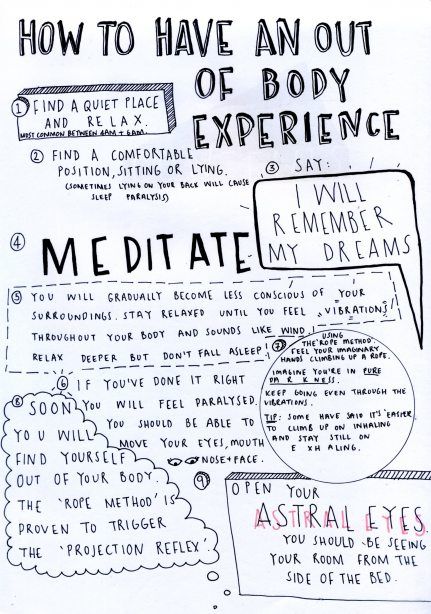 HOW TO HAVE AN OUT
OF BODY
EXPERIENCE
① FIND A QUIET PLACE
AND RELAX.
MOST COMMON BETWEEN 4AM + 6AM.
② FIND A COMFORTABLE
POSITION, SITTING OR LYING.
(SOMETIMES LYING ON YOUR BACK WILL CAUSE
SLEEP PARALYSIS)
③ SAY:
I WILL
REMEMBER
MY DREAMS
④
MEDITATE
⑤ YOU WILL GRADUALLY BECOME LESS CONSCIOUS OF YOUR
SURROUNDINGS. STAY RELAXED UNTIL YOU FEEL VIBRATIONS
THROUGHOUT YOUR BODY AND SOUNDS LIKE WIND.
RELAX DEEPER BUT DON'T FALL ASLEEP!
⑥ IF YOU'VE DONE IT RIGHT
YOU WILL FEEL PARALYSED.
YOU SHOULD BE ABLE TO
MOVE YOUR EYES, MOUTH
NOSE + FACE.
⑦ USING
THE 'ROPE METHOD',
FEEL YOUR IMAGINARY
HANDS CLIMBING UP A ROPE.
IMAGINE YOU'RE IN PURE
DARKNESS.
KEEP GOING EVEN THROUGH THE
VIBRATIONS.
TIP: SOME HAVE SAID IT'S EASIER
TO CLIMB UP ON INHALING
AND STAY STILL ON
EXHALING.
⑧ SOON
YOU WILL
FIND YOURSELF
OUT OF YOUR BODY.
THE 'ROPE METHOD' IS
PROVEN TO TRIGGER
THE 'PROJECTION REFLEX'.
⑨
OPEN YOUR
ASTRAL EYES
YOU SHOULD BE SEEING
YOUR ROOM FROM THE
SIDE OF THE BED.